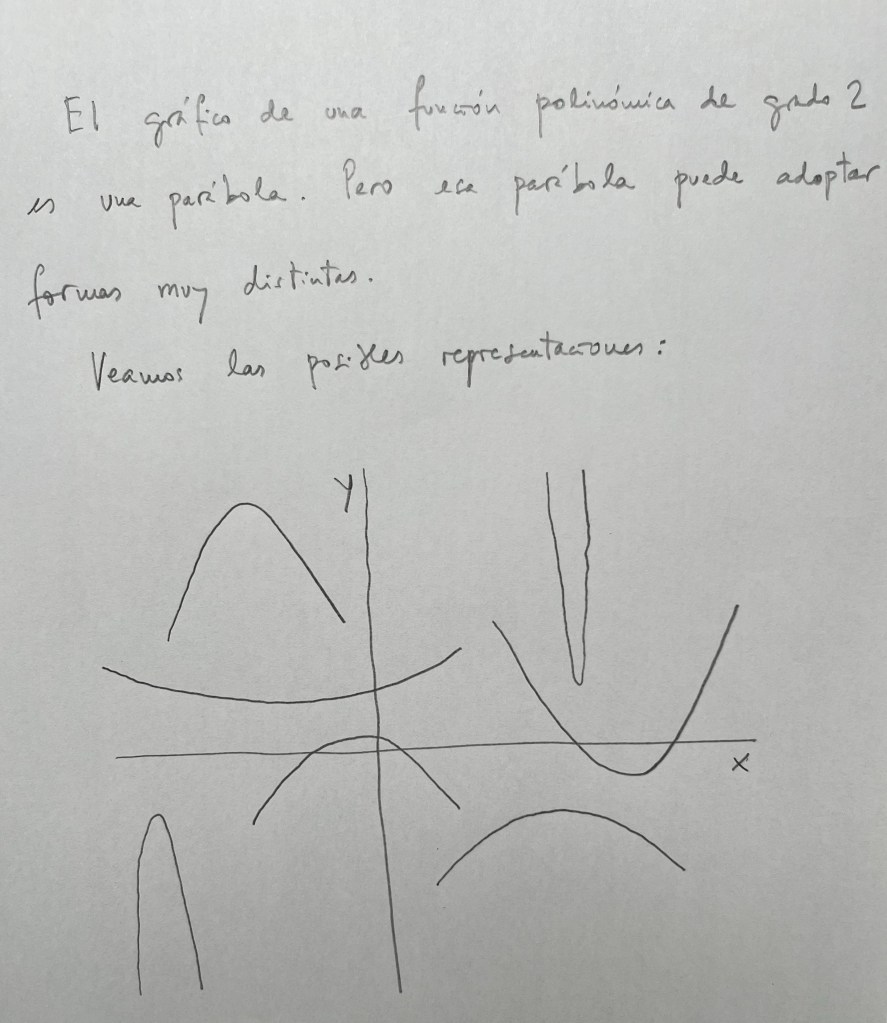 El gráfico de una función polinómica de grado 2
es una parábola. Pero esa parábola puede adoptar
formas muy distintas.
Veamos las posibles representaciones:
y
x